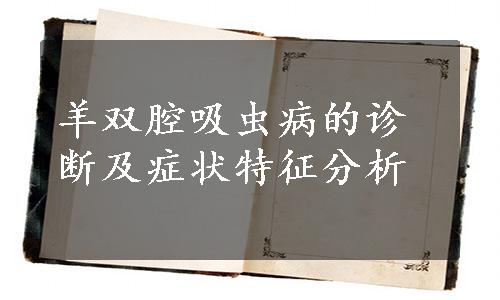 羊双腔吸虫病的诊
断及症状特征分析